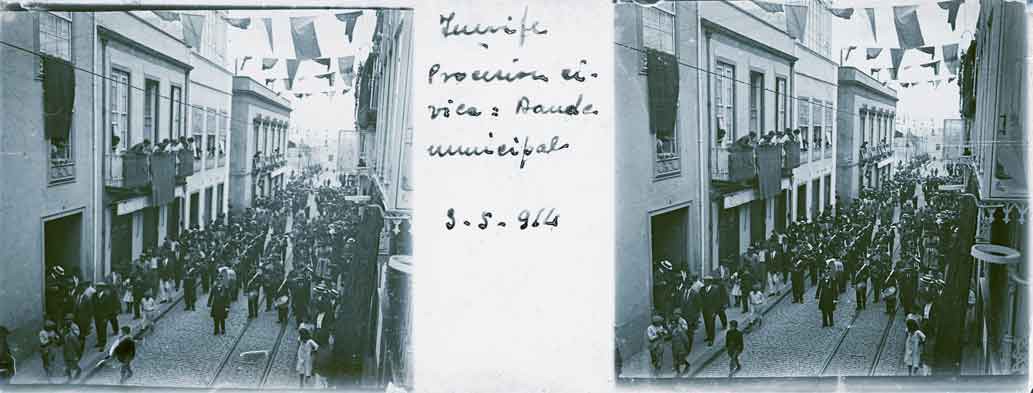 Tenerife
Procesion ci-
vica = Banda
municipal
3-5-914